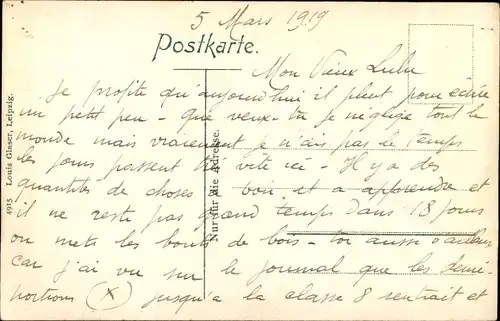 5 Mars 1919
Postkarte.
Mon Vieux Lulu
Je profite qu'aujourd'hui il pleut pour écrire
un petit peu - que veux-tu je néglige tout le
monde mais vraiement je n'ais pas le temps
les jours passent très vite ici - Il y a des
quantités de choses a voir et a apprendre et
il ne reste pas grand temps dans 18 jours
on mets les bouts de bois - toi aussi d'ailleurs
car j'ai vu sur le journal que les demi
portions (X) jusqu'a la classe 8 rentrait et
4915 Louis Glaser, Leipzig.
Nur für die Adresse.